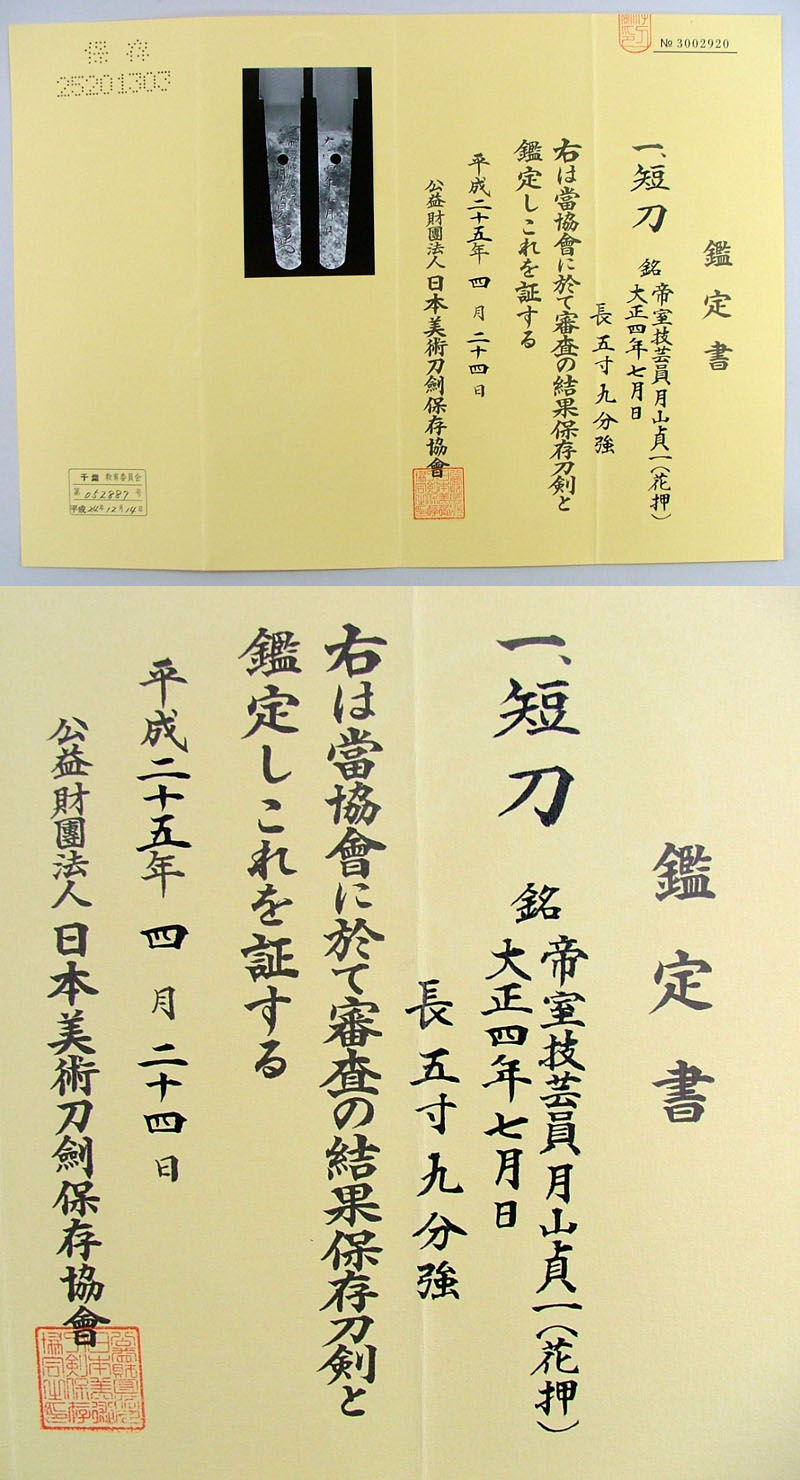 № 3002920
鑑定書
一、短刀
銘 帝室技芸員月山貞一(花押)
大正四年七月日
長五寸九分強
右は當協會に於て審査の結果保存刀剣と
鑑定しこれを証する
平成二十五年 四 月 二十四 日
公益財團法人 日本美術刀劍保存協會
保存
25201303
千葉 教育委員会
第 052887 号
平成24年12月14日
鑑定書
一、短刀
銘 帝室技芸員月山貞一(花押)
大正四年七月日
長五寸九分強
右は當協會に於て審査の結果保存刀剣と
鑑定しこれを証する
平成二十五年 四 月 二十四 日
公益財團法人 日本美術刀劍保存協會